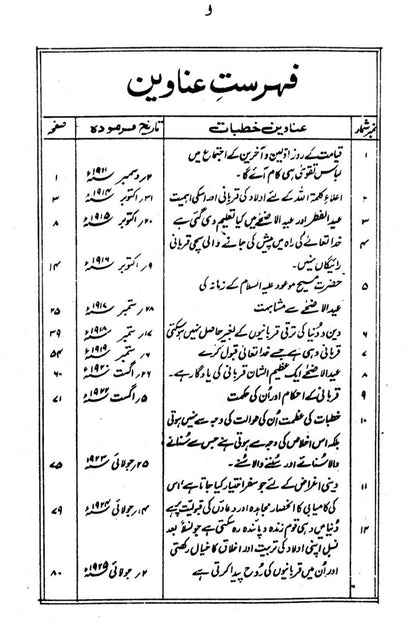 و
فہرست عناوین
نمبر شمار عناوین خطبات تاریخ فرمودہ صفحہ
۱ قیامت کے روز اوّلین و آخرین کے اجتماع میں
لباس تقویٰ ہی کام آئے گا۔ ۲؍ دسمبر ۱۹۱۱ء ۱
۲ اعلاءِ کلمۃ اللہ کے لئے اولاد کی قربانی اور اسکی اہمیت ۳۱؍ اکتوبر ۱۹۱۴ء ۳
۳ عید الفطر اور عید الاضحٰے میں کیا تعلیم دی گئی ہے ۲۰؍ اکتوبر ۱۹۱۵ء ۸
۴ خدا تعالےٰ کی راہ میں پیش کی جانے والی سچی قربانی
رائیگاں نہیں۔ ۹؍ اکتوبر ۱۹۱۶ء ۱۴
۵ حضرت مسیح موعود علیہ السلام کے زمانہ کی
عید الاضحٰے سے مشابہت ۲۸؍ ستمبر ۱۹۱۷ء ۲۵
۶ دین و دُنیا کی ترقی قربانیوں کے بغیر حاصل نہیں ہو سکتی ۱۷؍ ستمبر ۱۹۱۸ء ۳۹
۷ قربانی وہی ہے جسے خدا تعالیٰ قبول کرے ۶؍ ستمبر ۱۹۱۹ء ۵۴
۸ عید الاضحٰے ایک عظیم الشان قربانی کی یادگار ہے۔ ۲۶؍ اگست ۱۹۲۰ء ۶۰
۹ قربانی کے احکام اور اُن کی حکمت ۵؍ اگست ۱۹۲۲ء ۷۱
۱۰ خطبات کی عظمت اُن کی طوالت کی وجہ سے نہیں ہوتی
بلکہ اس اخلاص کی وجہ سے ہوتی ہے جس سے سُنانے
والا سُناتا ہے اور سُننے والا سُنے۔ ۲۵؍ جولائی ۱۹۲۳ء ۷۵
۱۱ دینی اغراض کے لئے جو سفر اختیار کیا جاتا ہے اس
کی کامیابی کا انحصار مجاہدہ اور دعاؤں کی قبولیت پر ہے ۱۴؍ جولائی ۱۹۲۴ء ۷۹
۱۲ دُنیا میں وہی قوم زندہ و پائندہ رہ سکتی ہے جو نسلاً بعد
نسل اپنی اولاد کی تربیت اور اخلاق کا خیال رکھتی
اور اُن میں قربانیوں کی رُوح پیدا کرتی ہے ۲؍ جولائی ۱۹۲۵ء ۸۰